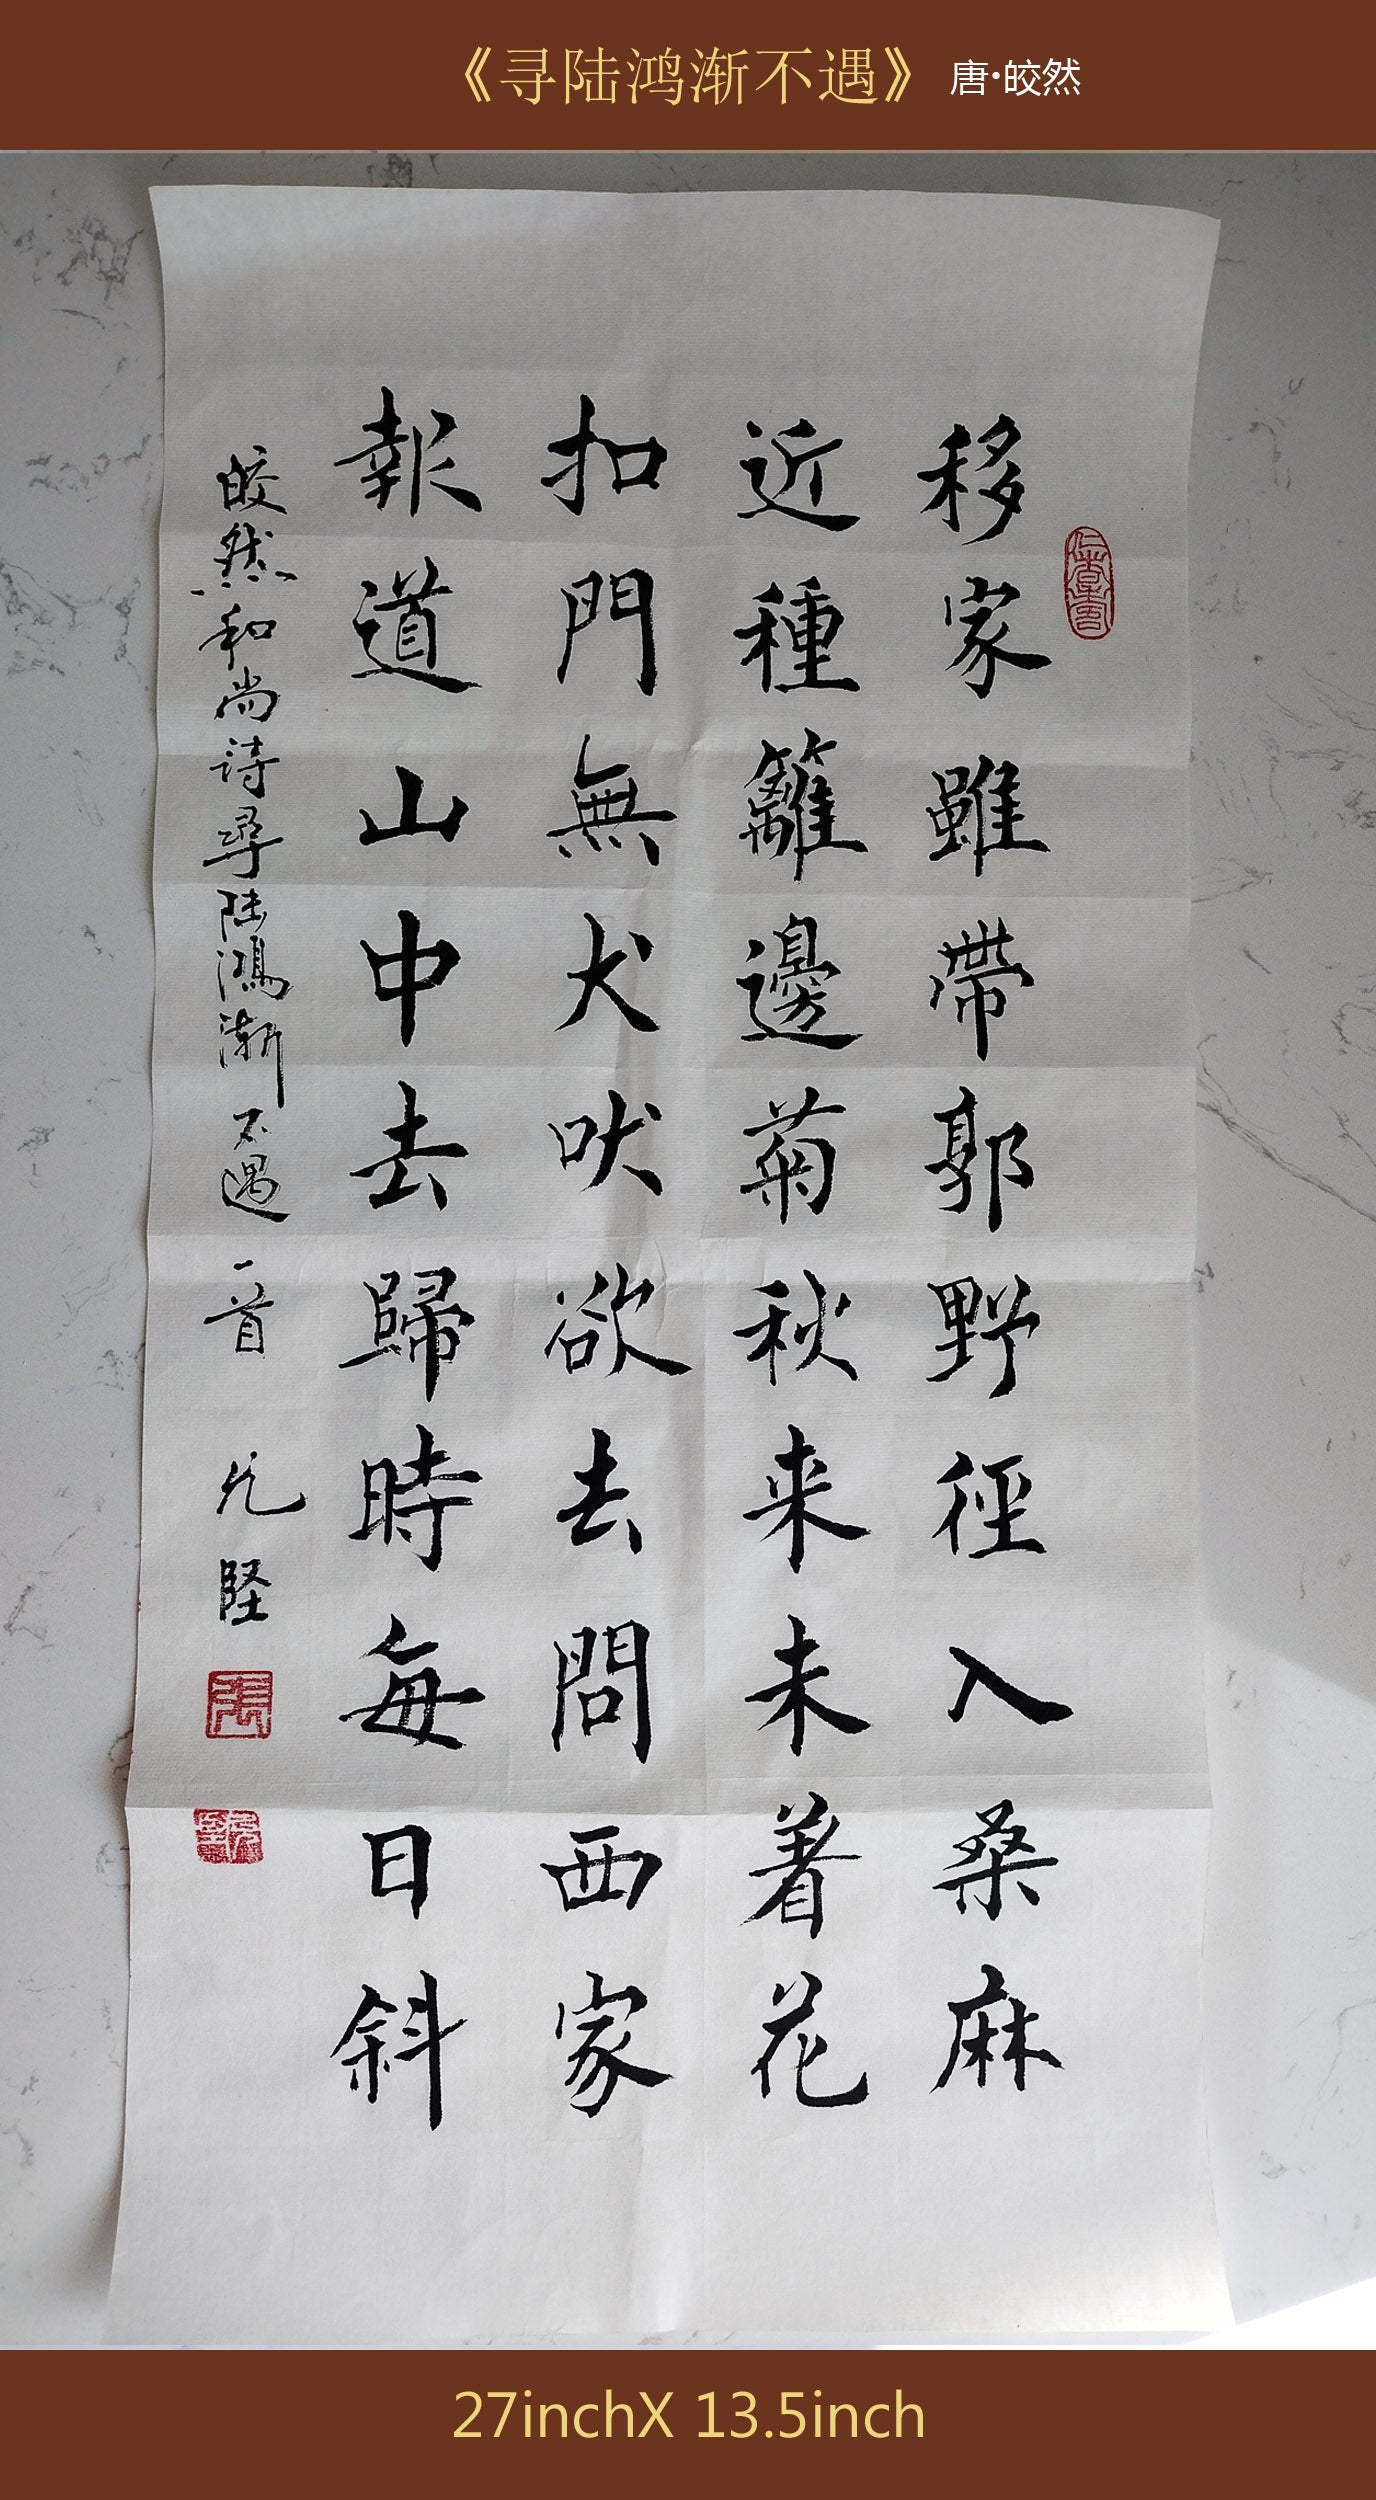 《寻陆鸿渐不遇》 唐·皎然
移家雖帶郭野徑入桑麻
近種籬邊菊秋来未着花
扣門無犬吠欲去問西家
報道山中去歸時每日斜
皎然和尚诗尋陆鴻漸不遇一首 允堅
張
27inchX 13.5inch